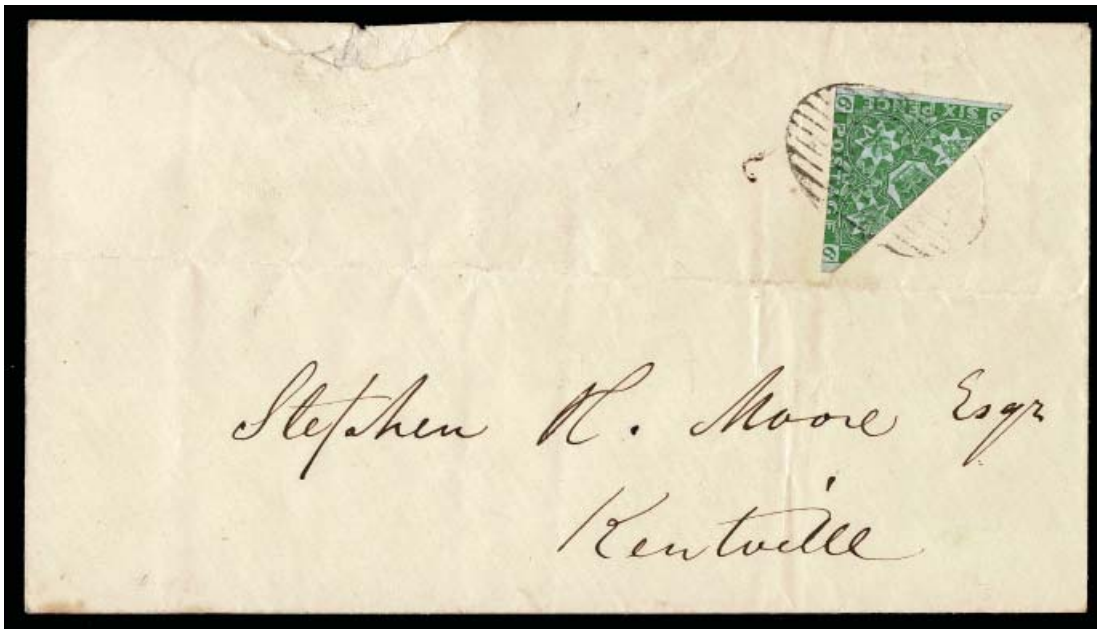 6 SIX PENCE 6
POSTAGE 6
Stephen H. Moore Esqr
Kentville